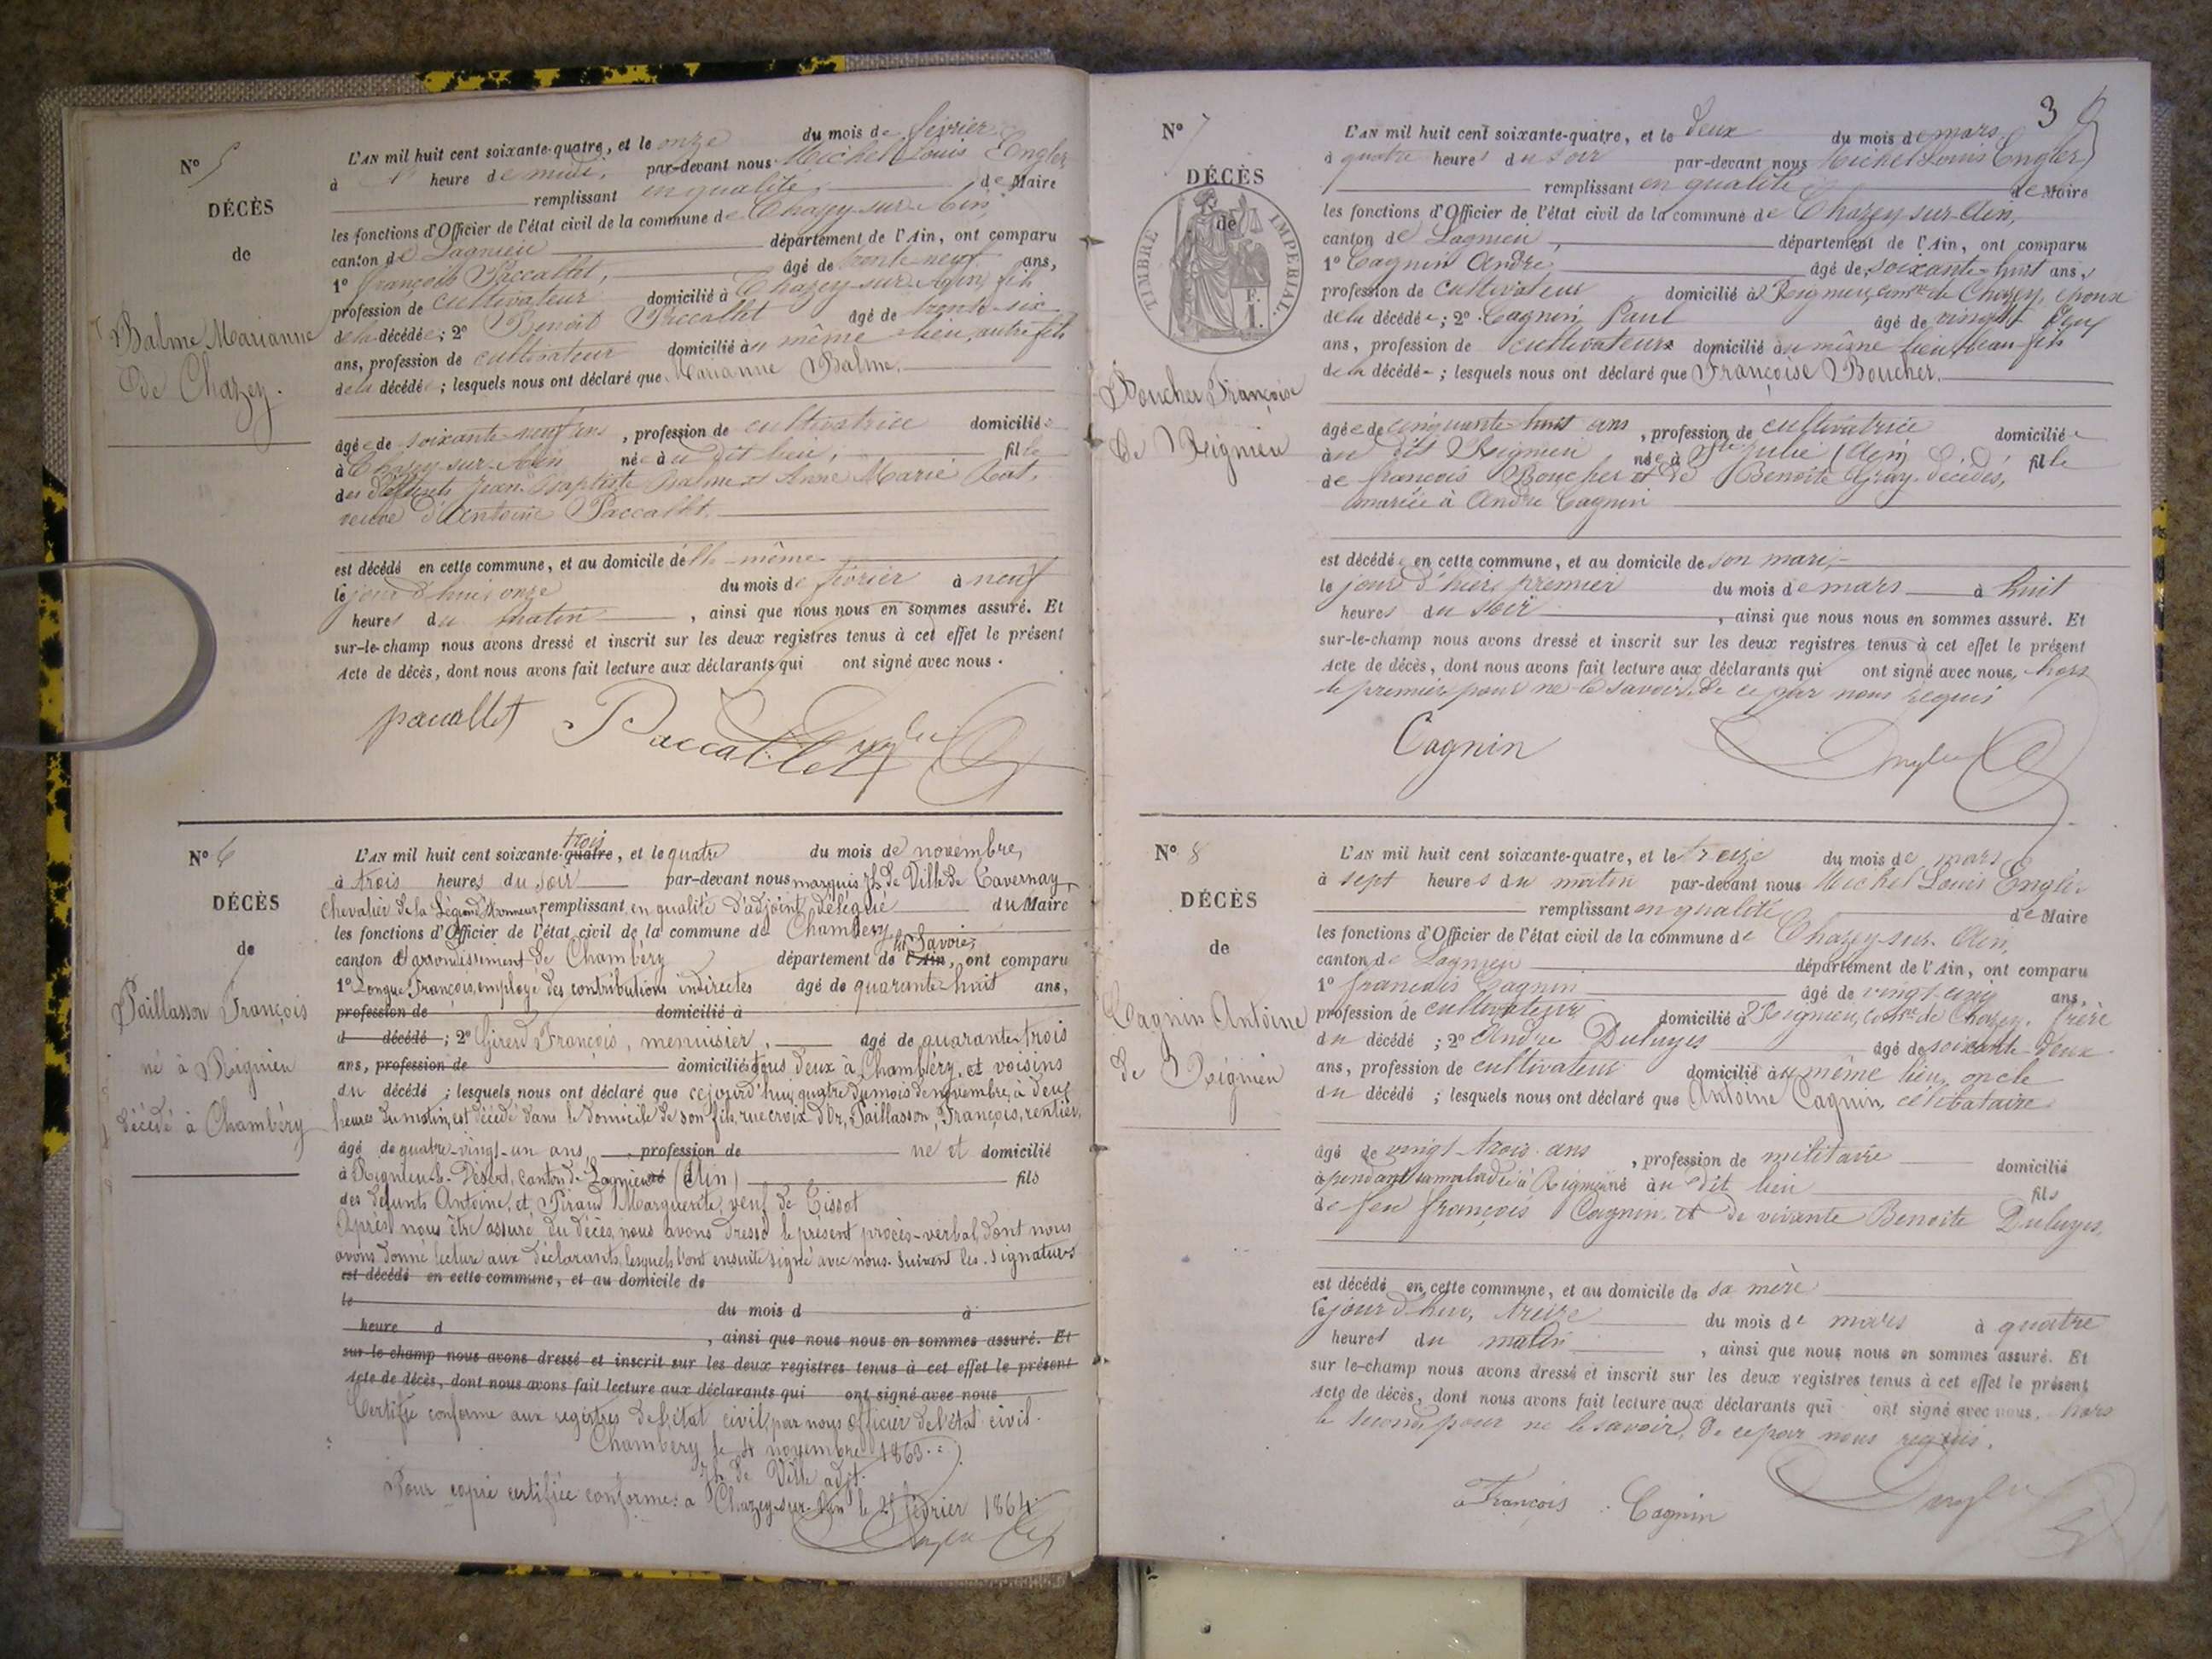 N° 5
DÉCÈS
de
Balme Marianne
De Chazey.
L'AN mil huit cent soixante-quatre, et le onze du mois de février
à 1 heure de midi, par-devant nous Michel Louis Engler
remplissant en qualité, de Maire
les fonctions d'Officier de l'état civil de la commune de Chazey-sur-Ain,
canton de Lagnieu département de l'Ain, ont comparu
1° François Paccallet, âgé de trente-neuf ans,
profession de cultivateur domicilié à Chazey-sur-Ain, fils
de la décédée; 2° Benoit Paccallet âgé de trente-six
ans, profession de cultivateur domicilié au même lieu, autre fils
de la décédée; lesquels nous ont déclaré que Marianne Balme,
âgée de soixante neuf ans, profession de cultivatrice domiciliée
à Chazey-sur-Ain née au dit lieu, fille
des défunts Jean-Baptiste Balme et Anne Marie
veuve d'Antoine Paccallet.
est décédé en cette commune, et au domicile d'elle-même
le jour d'hui onze du mois de février à neuf
heures du matin, ainsi que nous nous en sommes assuré. Et
sur-le-champ nous avons dressé et inscrit sur les deux registres tenus à cet effet le présent
Acte de décès, dont nous avons fait lecture aux déclarants qui ont signé avec nous.
paccallet Paccallet Engler
N° 6
DÉCÈS
de
Paillasson François
né à Rignieu
décédé à Chambéry
L'AN mil huit cent soixante-quatre trois, et le quatre du mois de novembre,
à trois heures du soir par-devant nous marquis Jh de Ville de Tavernay,
chevalier de la Légion d'honneur, remplissant en qualité d'adjoint délégué du Maire
les fonctions d'Officier de l'état civil de la commune de Chambéry,
canton d'arrondissement de Chambéry département de l'Ain la Savoie, ont comparu
1° Longue François, employé des contributions indirectes âgé de quarante-huit ans,
profession de domicilié à
d décédé; 2° Girerd François, menuisier, âgé de quarante-trois
ans, profession de domiciliés tous deux à Chambéry, et voisins
du décédé; lesquels nous ont déclaré que cejourd'hui, quatre du mois de novembre, à deux
heures du matin, est décédé dans le domicile de son fils, rue croix d'Or, Paillasson, François, rentier,
âgé de quatre-vingt-un ans, profession de né et domicilié
à Rignieu-le-Désert, canton de Lagnieu né (Ain) fils
des défunts Antoine, et Piraud Marguerite, veuf de Tissot
Après nous être assuré du décès, nous avons dressé le présent procès-verbal, dont nous
avons donné lecture aux déclarants, lesquels l'ont ensuite signé avec nous. Suivent les signatures
est décédé en cette commune, et au domicile de
le du mois d à
heure d, ainsi que nous nous en sommes assuré. Et
sur-le-champ nous avons dressé et inscrit sur les deux registres tenus à cet effet le présent
Acte de décès, dont nous avons fait lecture aux déclarants qui ont signé avec nous
Certifié conforme aux registres de l'état civil, par nous officier de l'état civil.
Chambéry le 4 novembre 1863.
Jh de Ville adjt.
Pour copie certifiée conforme: à Chazey-sur-Ain le février 1864.
Engler
3
N° 7
DÉCÈS
de
TIMBRE IMPÉRIAL
F.
1.
Boucher Françoise
De Rignieu
L'AN mil huit cent soixante-quatre, et le deux du mois de mars,
à quatre heures du soir par-devant nous Michel Louis Engler
remplissant en qualité de Maire
les fonctions d'Officier de l'état civil de la commune de Chazey-sur-Ain,
canton de Lagnieu, département de l'Ain, ont comparu
1° Cagnin André âgé de soixante-huit ans,
profession de cultivateur domicilié à Rignieu, comne de Chazey, époux
de la décédée; 2° Cagnin Paul âgé de vingt
ans, profession de cultivateur domicilié au même lieu, beau-fils
de la décédée; lesquels nous ont déclaré que Françoise Boucher.
âgée de cinquante-huit ans, profession de cultivatrice domiciliée
au dit Rignieu née à Ste Julie (Ain) fille
de françois Boucher et de Benoite décédés,
mariée à André Cagnin
est décédée en cette commune, et au domicile de son mari,
le jour d'hier, premier du mois de mars à huit
heures du soir, ainsi que nous nous en sommes assuré. Et
sur-le-champ nous avons dressé et inscrit sur les deux registres tenus à cet effet le présent
Acte de décès, dont nous avons fait lecture aux déclarants qui ont signé avec nous, hors
le premier pour ne le savoir, de ce par nous requis
Cagnin Engler
N° 8
DÉCÈS
de
Cagnin Antoine
de Rignieu
L'AN mil huit cent soixante-quatre, et le treize du mois de mars
à sept heures du matin par-devant nous Michel Louis Engler
remplissant en qualité de Maire
les fonctions d'Officier de l'état civil de la commune de Chazey-sur-Ain,
canton de Lagnieu département de l'Ain, ont comparu
1° françois Cagnin âgé de vingt-cinq ans,
profession de cultivateur domicilié à Rignieu, comne de Chazey, frère
du décédé; 2° André Duluyes âgé de soixante-deux
ans, profession de cultivateur domicilié au même lieu, oncle
du décédé; lesquels nous ont déclaré que Antoine Cagnin, célibataire
âgé de vingt-trois ans, profession de militaire domicilié
à pendant sa maladie à Rignieu né au dit lieu fils
de feu françois Cagnin et de vivante Benoite Duluyes,
est décédé en cette commune, et au domicile de sa mère
le jour d'hui, treize du mois de mars à quatre
heures du matin, ainsi que nous nous en sommes assuré. Et
sur le-champ nous avons dressé et inscrit sur les deux registres tenus à cet effet le présent
Acte de décès, dont nous avons fait lecture aux déclarants qui ont signé avec nous, hors
le second, pour ne le savoir, de ce par nous requis.
François Cagnin Engler